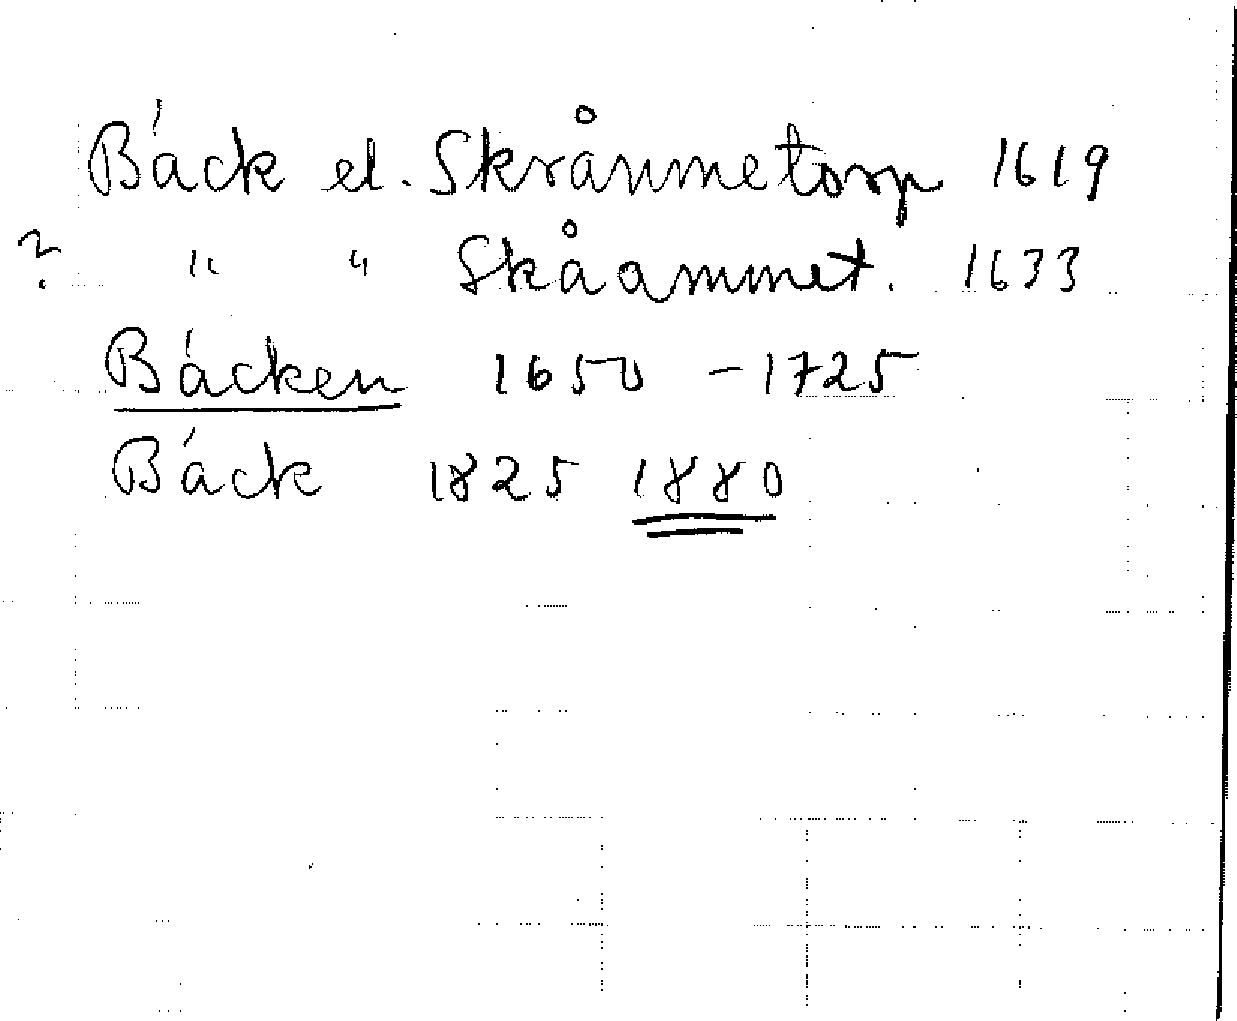 Bäck el. Skrånmetorp 1619
? " " Skåammet. 1633
Bäcken 1650 - 1725
Bäck 1825 1880